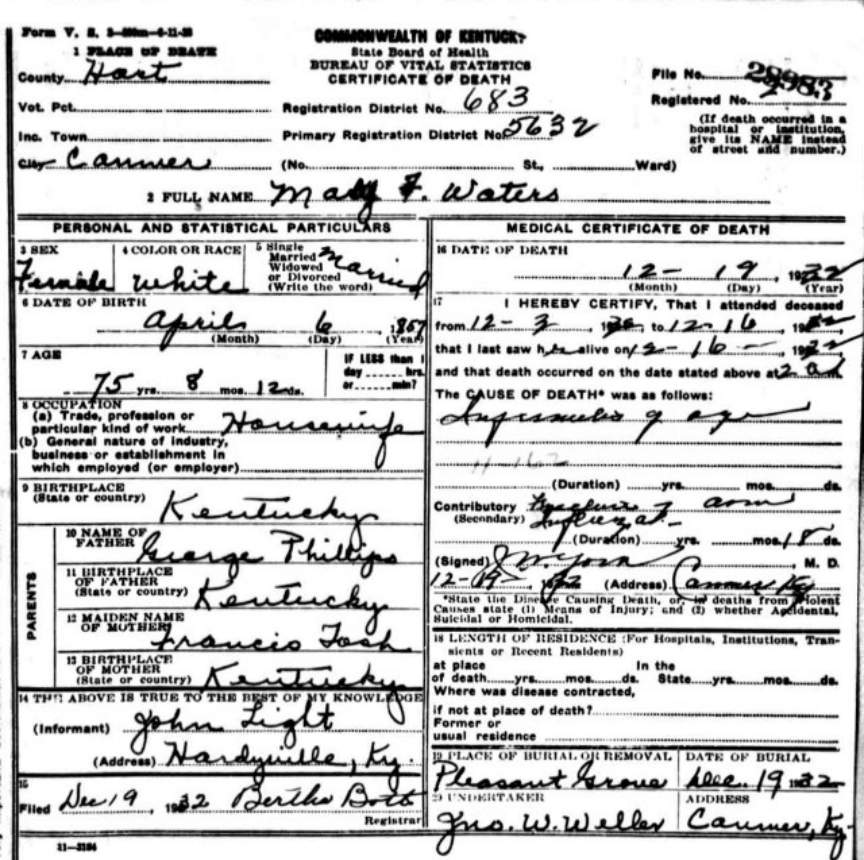 Form V. S.
COMMONWEALTH OF KENTUCKY
State Board of Health
BUREAU OF VITAL STATISTICS
CERTIFICATE OF DEATH
1 PLACE OF DEATH
County Hart
Vot. Pct.
Inc. Town
City Canmer
Registration District No. 683
Primary Registration District No. 5632
(No. St., Ward)
File No. 28983
Registered No.
(If death occurred in a
hospital or institution,
give its NAME instead
of street and number.)
2 FULL NAME Mary F. Waters
PERSONAL AND STATISTICAL PARTICULARS
3 SEX
Female
4 COLOR OR RACE
White
5 Single
Married
Widowed
or Divorced
(Write the word)
Married
6 DATE OF BIRTH
April 6, 1857
(Month) (Day) (Year)
7 AGE
75 yrs. 8 mos. 12 ds.
IF LESS than 1
day hrs.
or min?
8 OCCUPATION
(a) Trade, profession or
particular kind of work Housewife
(b) General nature of industry,
business or establishment in
which employed (or employer)
9 BIRTHPLACE
(State or country) Kentucky
PARENTS
10 NAME OF
FATHER George Phillips
11 BIRTHPLACE
OF FATHER
(State or country) Kentucky
12 MAIDEN NAME
OF MOTHER Francis Tosh
13 BIRTHPLACE
OF MOTHER
(State or country) Kentucky
14 THE ABOVE IS TRUE TO THE BEST OF MY KNOWLEDGE
(Informant) John Light
(Address) Hardyville, Ky.
15
Filed Dec 19, 1932 Bertha Botts
Registrar
11-3184
MEDICAL CERTIFICATE OF DEATH
16 DATE OF DEATH
12- 19, 1932
(Month) (Day) (Year)
17 I HEREBY CERTIFY, That I attended deceased
from 12-3, 1932, to 12-16, 1932
that I last saw her alive on 12-16-, 1932
and that death occurred on the date stated above at 2 a.
The CAUSE OF DEATH* was as follows:
Infirmities of age
H-162
(Duration) yrs. mos. ds.
Contributory Fracture of arm
(Secondary) Influenza
(Duration) yrs. mos. 18 ds.
(Signed), M. D.
12-19-, 1932 (Address) Canmer Ky
*State the Disease Causing Death, or, in deaths from Violent
Causes state (1) Means of Injury; and (2) whether Accidental,
Suicidal or Homicidal.
18 LENGTH OF RESIDENCE (For Hospitals, Institutions, Tran-
sients or Recent Residents)
at place In the
of death yrs. mos. ds. State yrs. mos. ds.
Where was disease contracted,
if not at place of death?
Former or
usual residence
19 PLACE OF BURIAL OR REMOVAL
Pleasant Grove
DATE OF BURIAL
Dec. 19 1932
20 UNDERTAKER
Jno. W. Weller
ADDRESS
Canmer, Ky